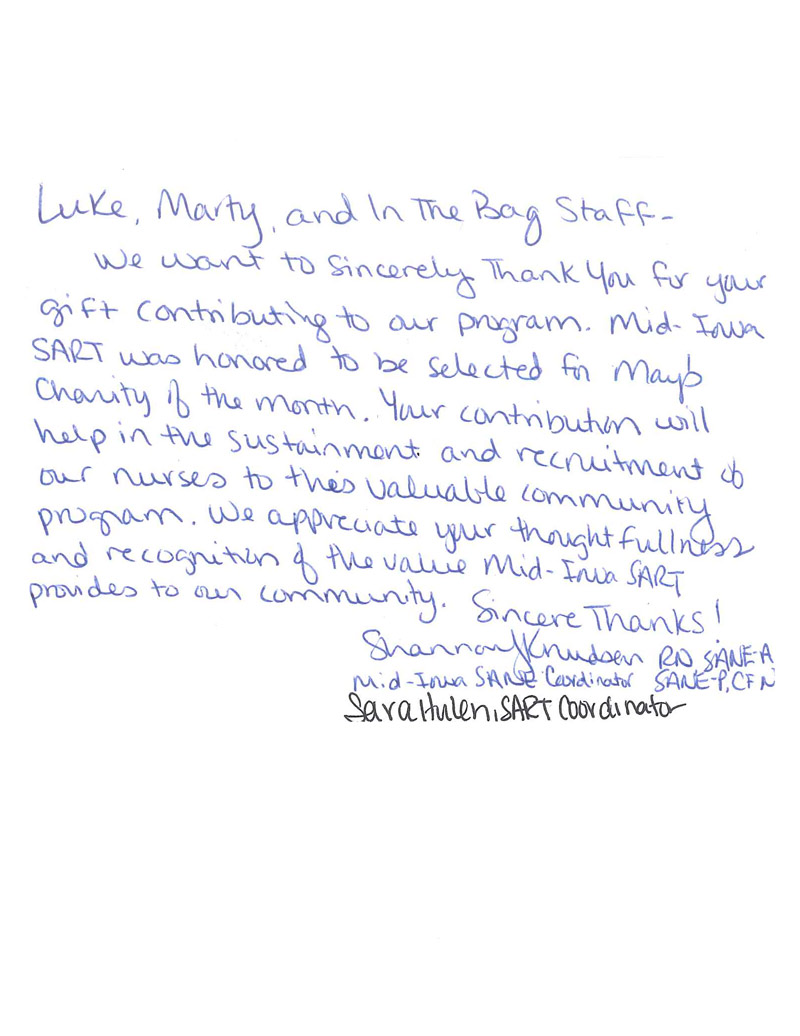 Luke, Marty, and In The Bag Staff-
We want to Sincerely Thank You for your
gift contributing to our program. Mid-Iowa
SART was honored to be selected for May's
Charity of the month. Your contribution will
help in the sustainment and recruitment of
our nurses to this valuable community
program. We appreciate your thoughtfullness
and recognition of the value Mid-Iowa SART
provides to our community. Sincere Thanks!
Shannon Knudsen RN, SANE-A
Mid-Iowa SANE Coordinator SANE-P, CFN
Sara Hulen, SART Coordinator